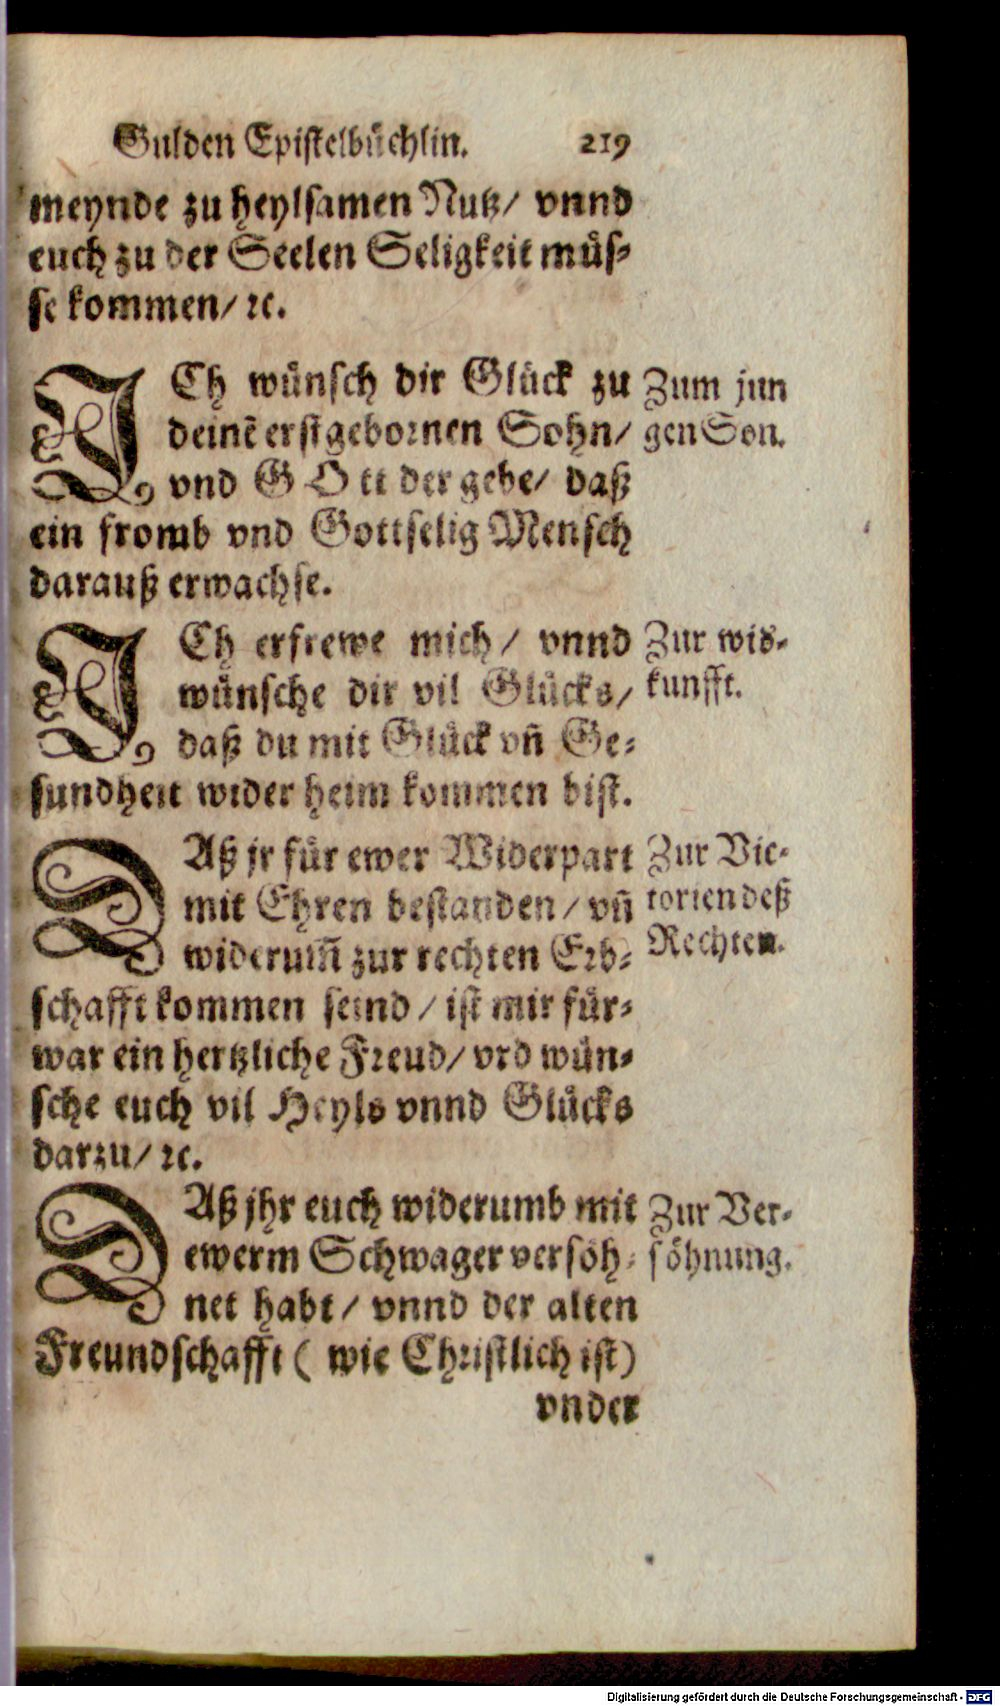 Gulden Epistelbüchlin. 219
meynde zu heylsamen Nutz/ vnnd
euch zu der Seelen Seligkeit müs-
se kommen/ ꝛc.
ICh wünsch dir Glück zu
deinē erstgebornen Sohn/
vnd GOtt der gebe/ daß
ein fromb vnd Gottselig Mensch
darauß erwachse.
Zum jun
gen Son.
ICh erfrewe mich/ vnnd
wünsche dir vil Glücks/
daß du mit Glück vñ Ge-
sundheit wider heim kommen bist.
Zur wid-
kunfft.
DAß jr für ewer Widerpart
mit Ehren bestanden/ vñ
widerum̄ zur rechten Erb-
schafft kommen seind/ ist mir für-
war ein hertzliche Freud/ vnd wün-
sche euch vil Heyls vnnd Glücks
darzu/ ꝛc.
Zur Vic-
torien deß
Rechten.
DAß jhr euch widerumb mit
ewerm Schwager versöh-
net habt/ vnnd der alten
Freundschafft ( wie Christlich ist)
Zur Ver-
söhnung.
vnder
Digitalisierung gefördert durch die Deutsche Forschungsgemeinschaft - DFG